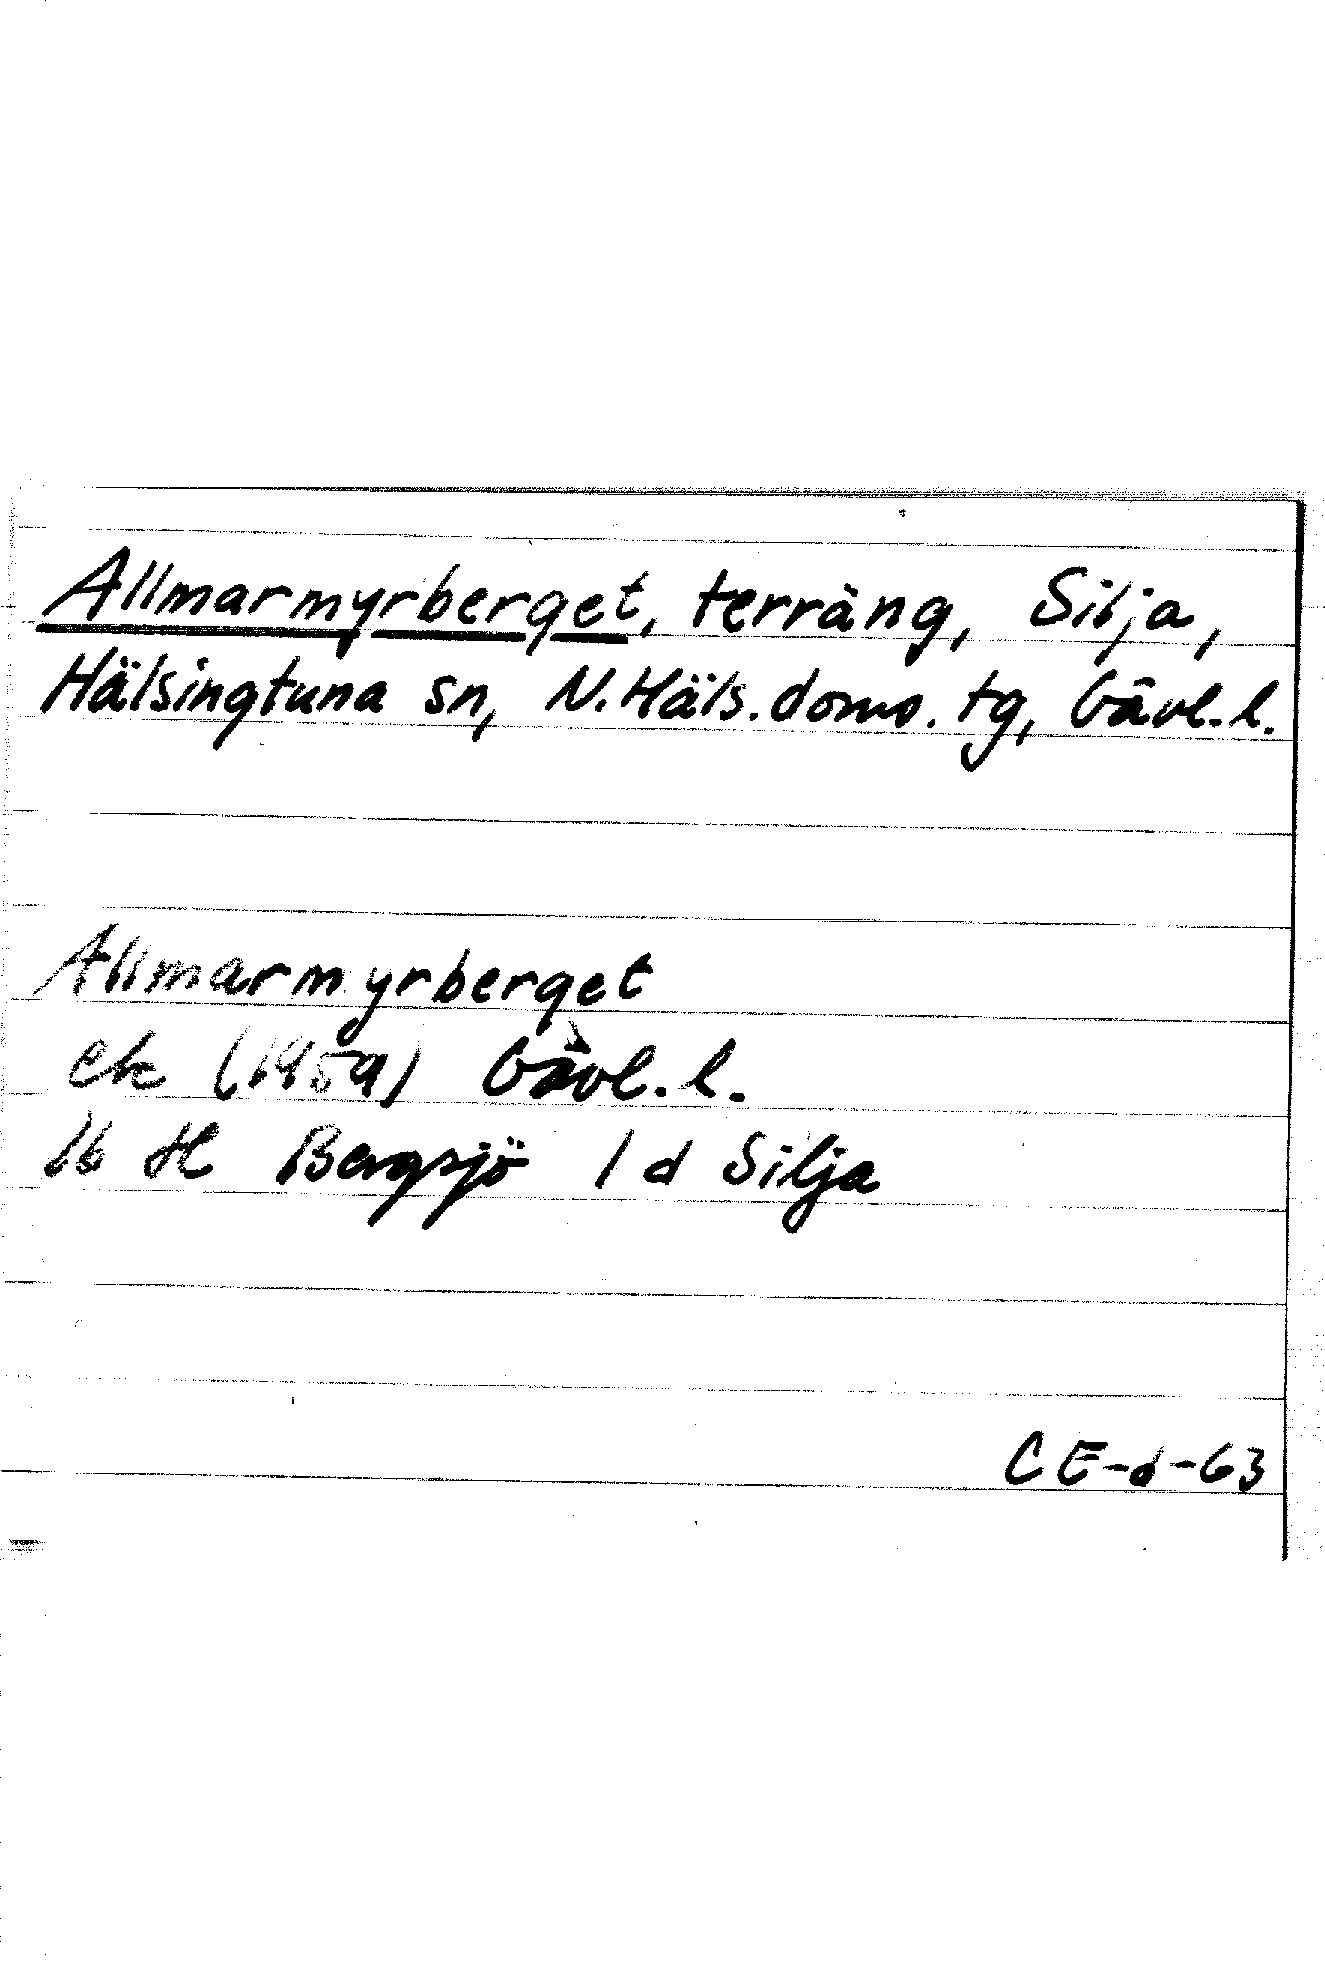 Allmarmyrberget, terräng, Silja,
Hälsingtuna sn, N. Häls. doms. tg, Gävl. l.
Allmarmyrberget
ek (1959) Gävl. l.
16 H Bergsjö 1 d Silja
CE-d-63